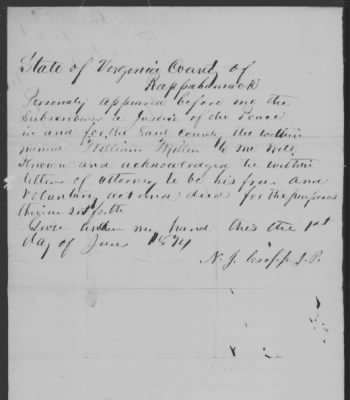 State of Virginia County of
Rappahannock
Personaly appeared before me the
Subscriber a Justice of the Peace
in and for the Said County the within
named William Miller to me well
Known and acknowledged the within
letters of attorney to be his free and
Voluntary act and deed for the purposes
therein set forth
Given under my hand this the 1st
day of June 1874
N. J. Cropp J.P.